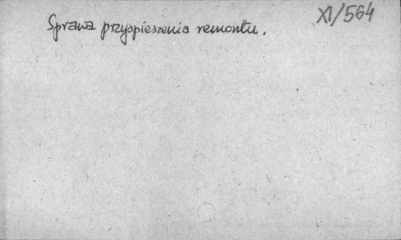 XI/564
Sprawa przyspieszenia remontu.